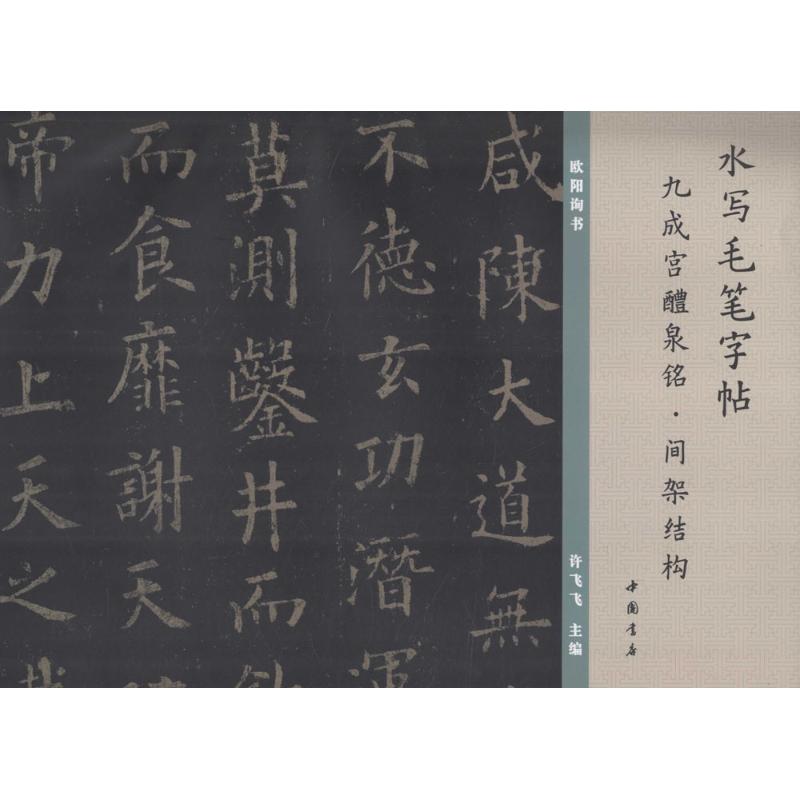 水写毛笔字帖
九成宫醴泉铭·间架结构
中国书店
欧阳询书
许飞飞 主编
咸陳大道無
不德玄功潛運
莫測鑿井而
而食靡謝天
帝力上天之